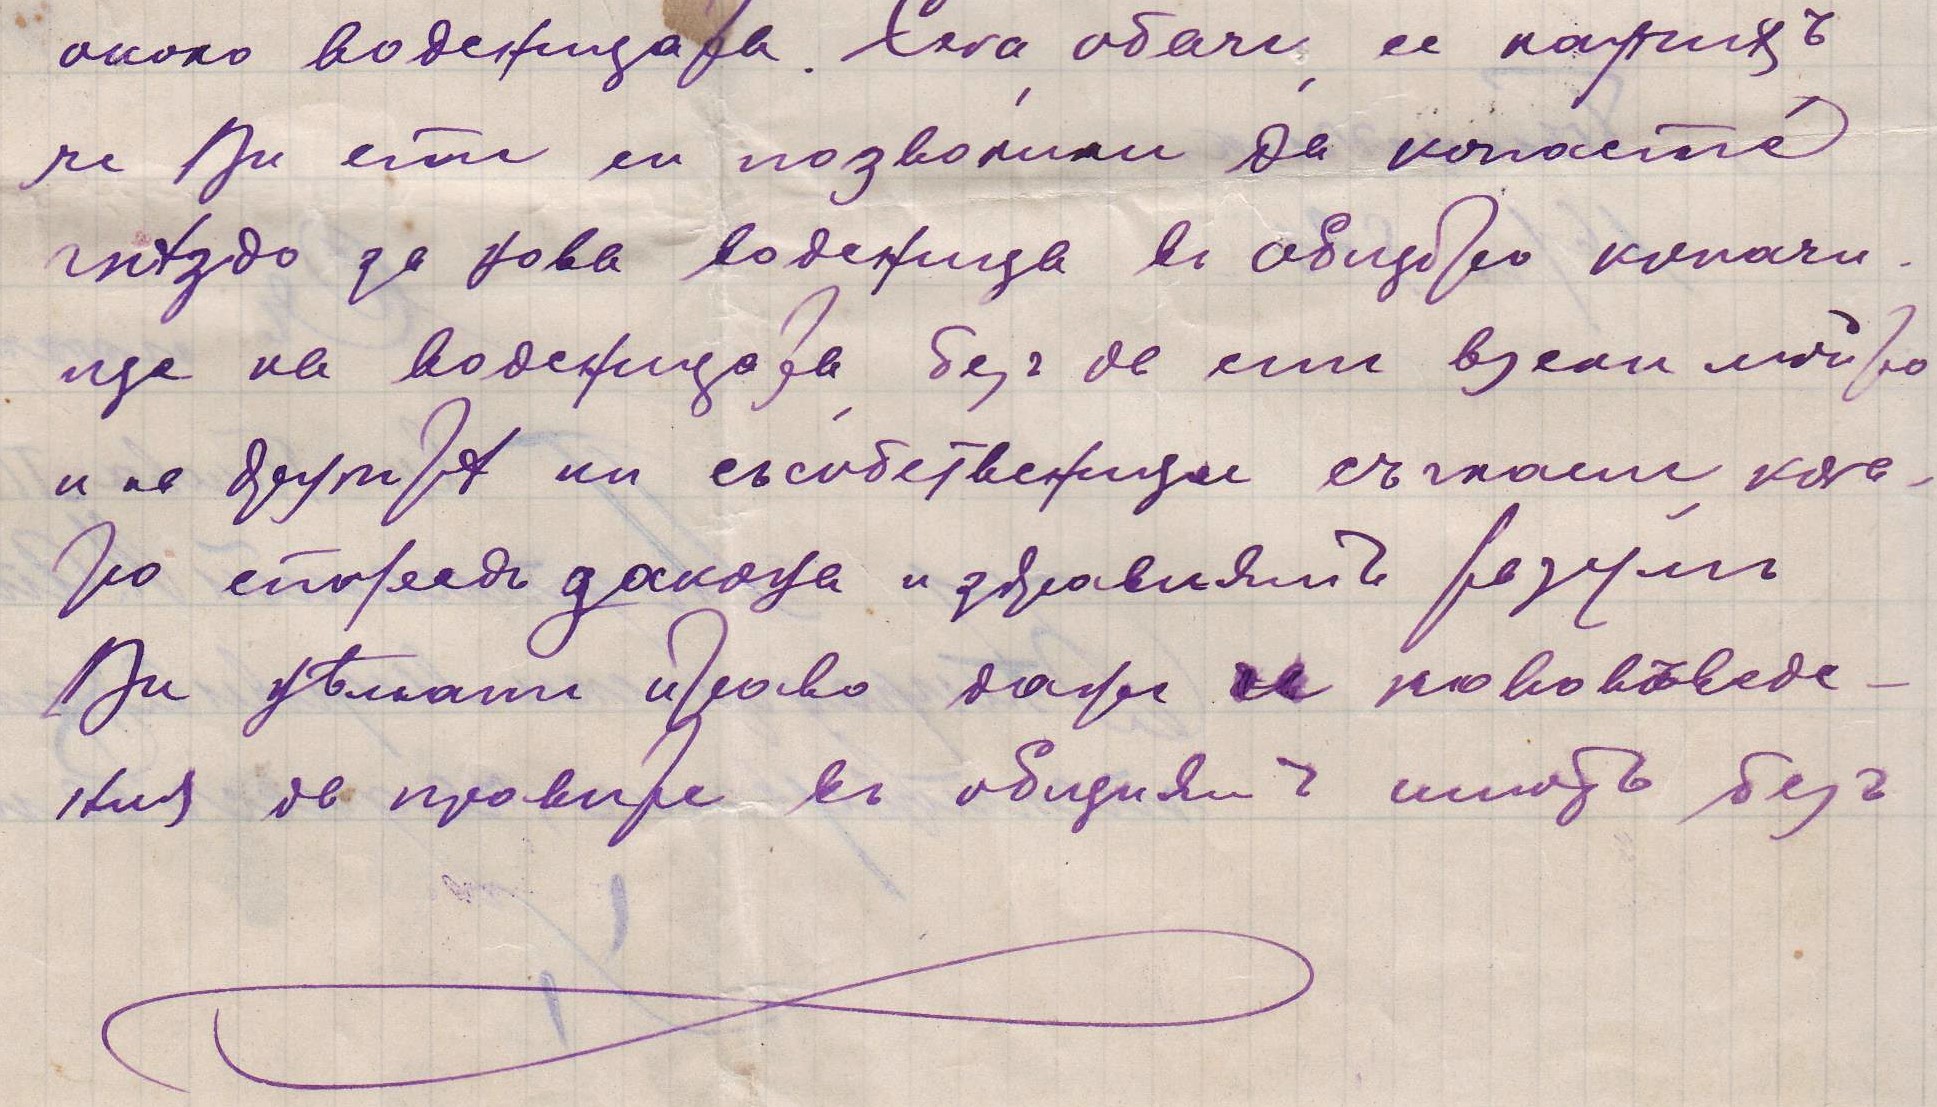 около воденицата. Сега, обаче, се научихъ
че Ви сте си позволили да копаете
гнѣздо за нова воденица въ общото копачи-
ще на воденицата, безъ да сте взели моето
и на другитѣ ни съсобственици съгласие, кое-
то споредъ закона и здравиятъ разумъ
Ви нѣмате право даже и нововъведе-
ния да правите въ общиятъ имотъ безъ